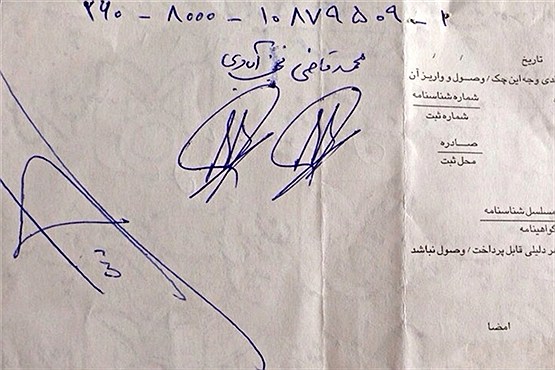 ۲۶۰ - ۸۰۰۰ - ۱۰۸۷۹۵۰۹ - ۲
محمد قاضی نجف آبادی
تاریخ
وجه این چک / وصول و واریز آن
شماره شناسنامه
شماره ثبت
صادره
محل ثبت
شناسنامه
گواهینامه
دلیلی قابل پرداخت / وصول نباشد
امضا